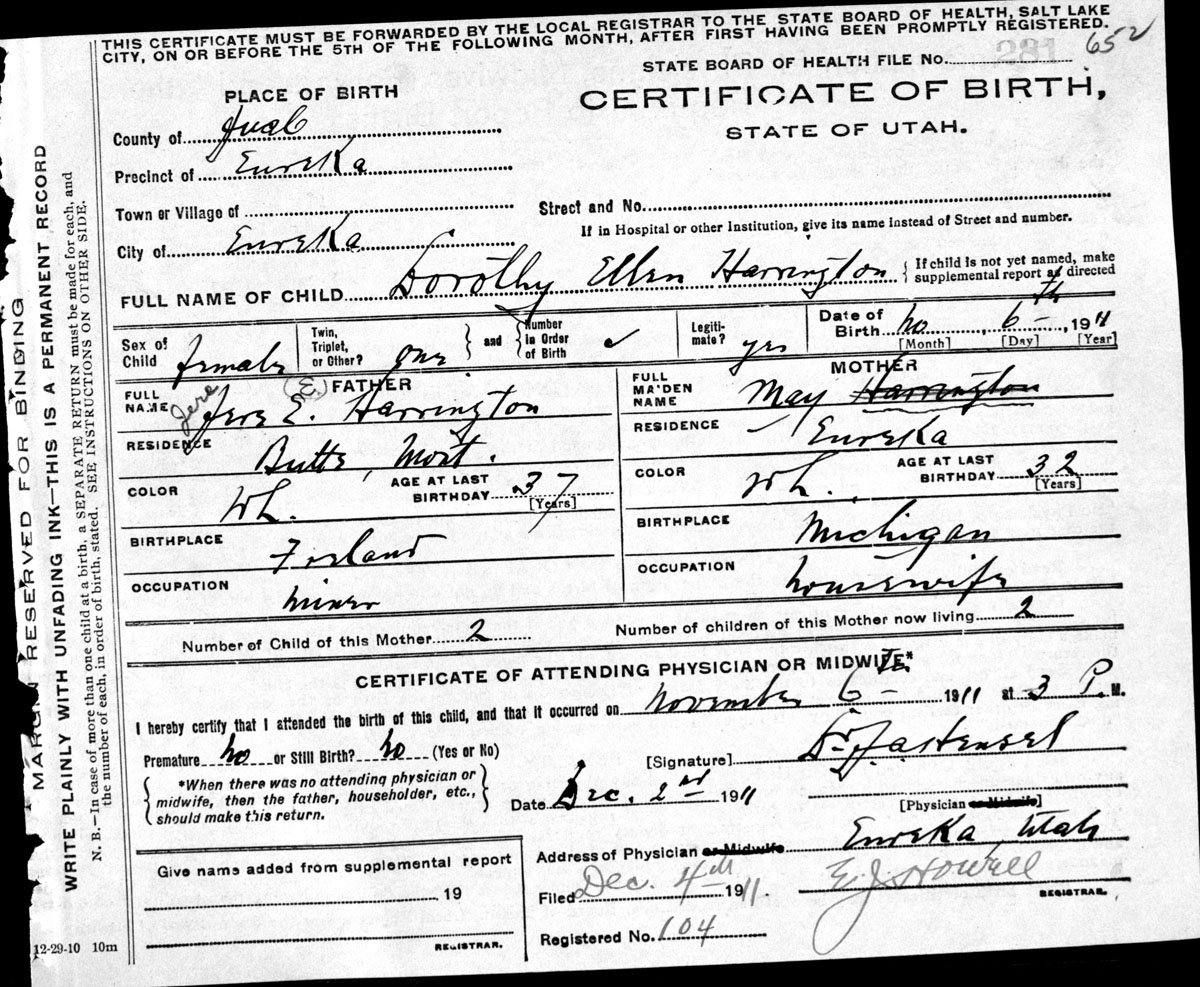 THIS CERTIFICATE MUST BE FORWARDED BY THE LOCAL REGISTRAR TO THE STATE BOARD OF HEALTH, SALT LAKE
CITY, ON OR BEFORE THE 5TH OF THE FOLLOWING MONTH, AFTER FIRST HAVING BEEN PROMPTLY REGISTERED.
281
652
STATE BOARD OF HEALTH FILE No.
PLACE OF BIRTH
CERTIFICATE OF BIRTH,
STATE OF UTAH.
County of Juab
Precinct of Eureka
Town or Village of
Street and No.
If in Hospital or other Institution, give its name instead of Street and number.
City of Eureka
FULL NAME OF CHILD Dorothy Ellen Harrington { If child is not yet named, make supplemental report as directed
Sex of Child female
Twin, Triplet, or Other? one } and { Number in Order of Birth
Legitimate? yes
Date of Birth No, 6th 1911
[Month] [Day] [Year]
FATHER
FULL NAME Jere E. Harrington
Jere (E.)
RESIDENCE Butte, Mont.
COLOR Wh. AGE AT LAST BIRTHDAY 37 [Years]
BIRTHPLACE Ireland
OCCUPATION miner
MOTHER
FULL MAIDEN NAME May Harrington
RESIDENCE Eureka
COLOR Wh. AGE AT LAST BIRTHDAY 32 [Years]
BIRTHPLACE Michigan
OCCUPATION housewife
Number of Child of this Mother 2
Number of children of this Mother now living 2
CERTIFICATE OF ATTENDING PHYSICIAN OR MIDWIFE*
I hereby certify that I attended the birth of this child, and that it occurred on November 6th 1911 at 3 P. M.
Premature no or Still Birth? no (Yes or No)
{ *When there was no attending physician or midwife, then the father, householder, etc., should make this return. }
[Signature] Dr
[Physician or Midwife]
Date Dec. 2nd 1911
Address of Physician or Midwife Eureka, Utah
Give name added from supplemental report
19
REGISTRAR.
Filed Dec. 4th 1911. E. J. Howell
REGISTRAR.
Registered No. 104
12-29-10 10m
MARGIN RESERVED FOR BINDING
WRITE PLAINLY WITH UNFADING INK—THIS IS A PERMANENT RECORD
N. B.—In case of more than one child at a birth, a SEPARATE RETURN must be made for each, and
the number of each, in order of birth, stated. SEE INSTRUCTIONS ON OTHER SIDE.